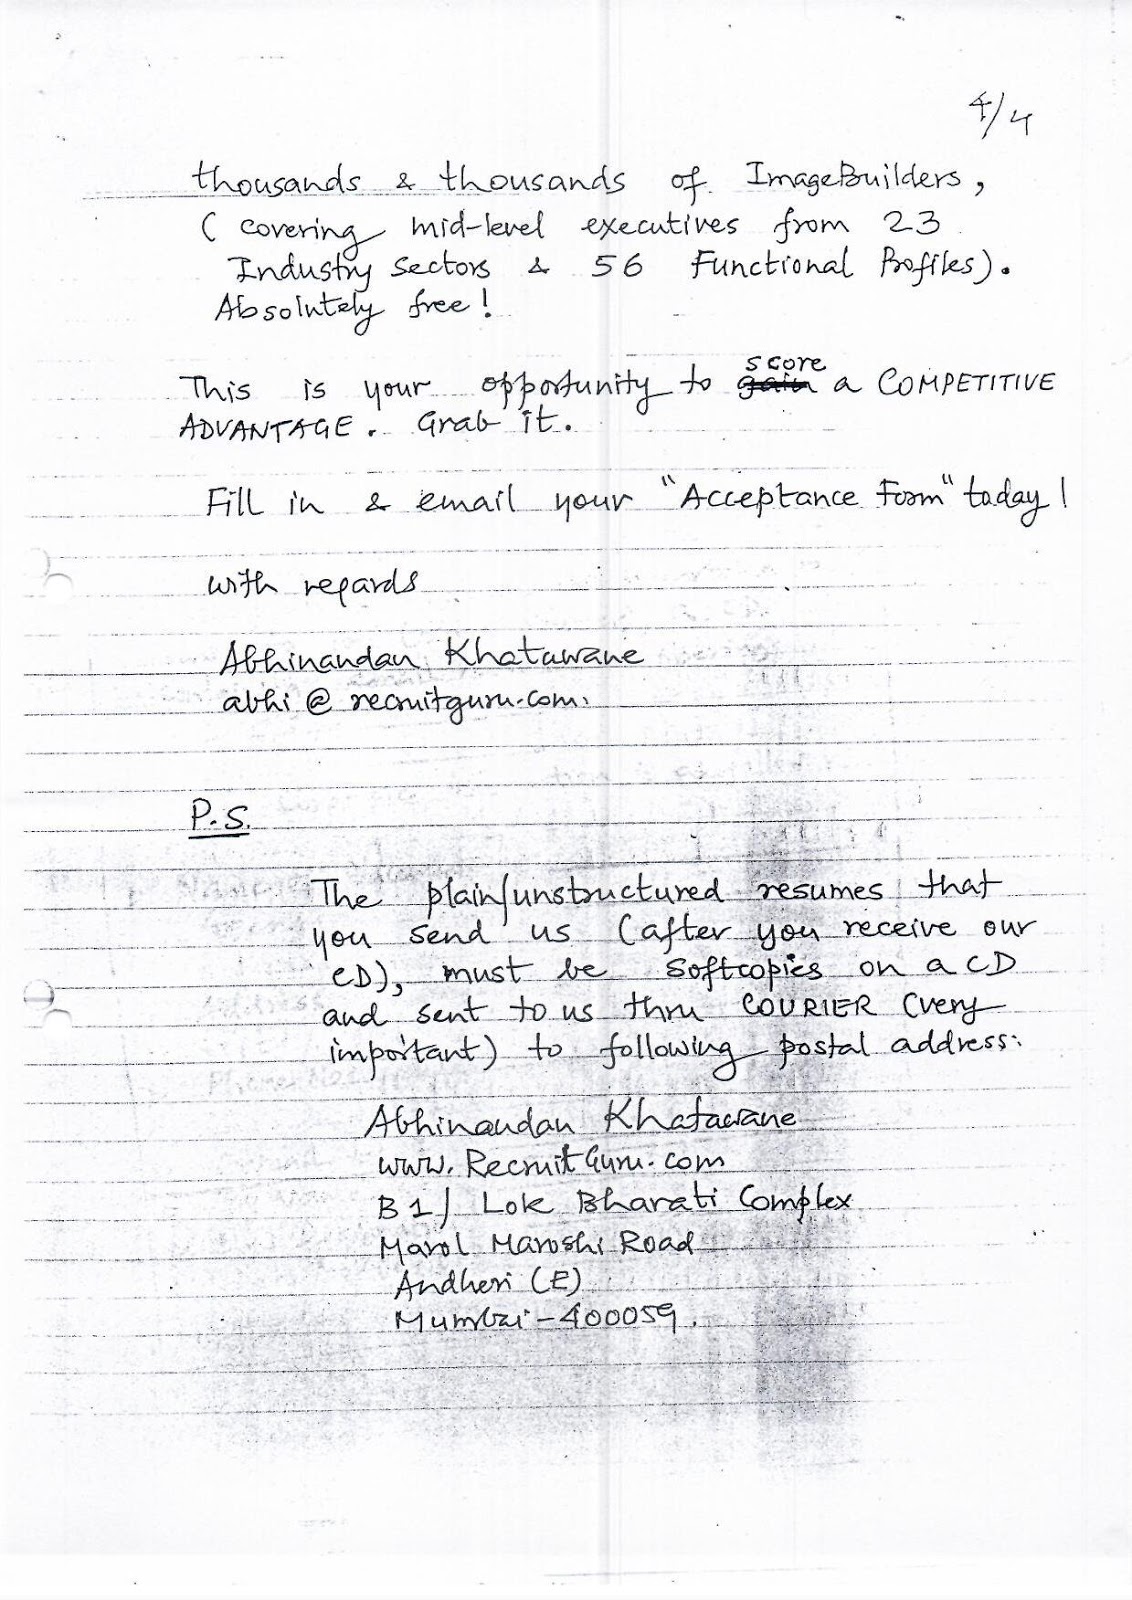 4/4
thousands & thousands of ImageBuilders,
( covering mid-level executives from 23
Industry Sectors & 56 Functional Profiles).
Absolutely free!
score
This is your opportunity to gain a COMPETITIVE
ADVANTAGE. Grab it.
Fill in & email your "Acceptance Form" today!
with regards
Abhinandan Khatawane
abhi @ recruitguru.com.
P.S.
The plain/unstructured resumes that
you send us (after you receive our
CD), must be softcopies on a CD
and sent to us thru COURIER (very
important) to following postal address:
Abhinandan Khatawane
www.RecruitGuru.com
B1/ Lok Bharati Complex
Marol Maroshi Road
Andheri (E)
Mumbai-400059.